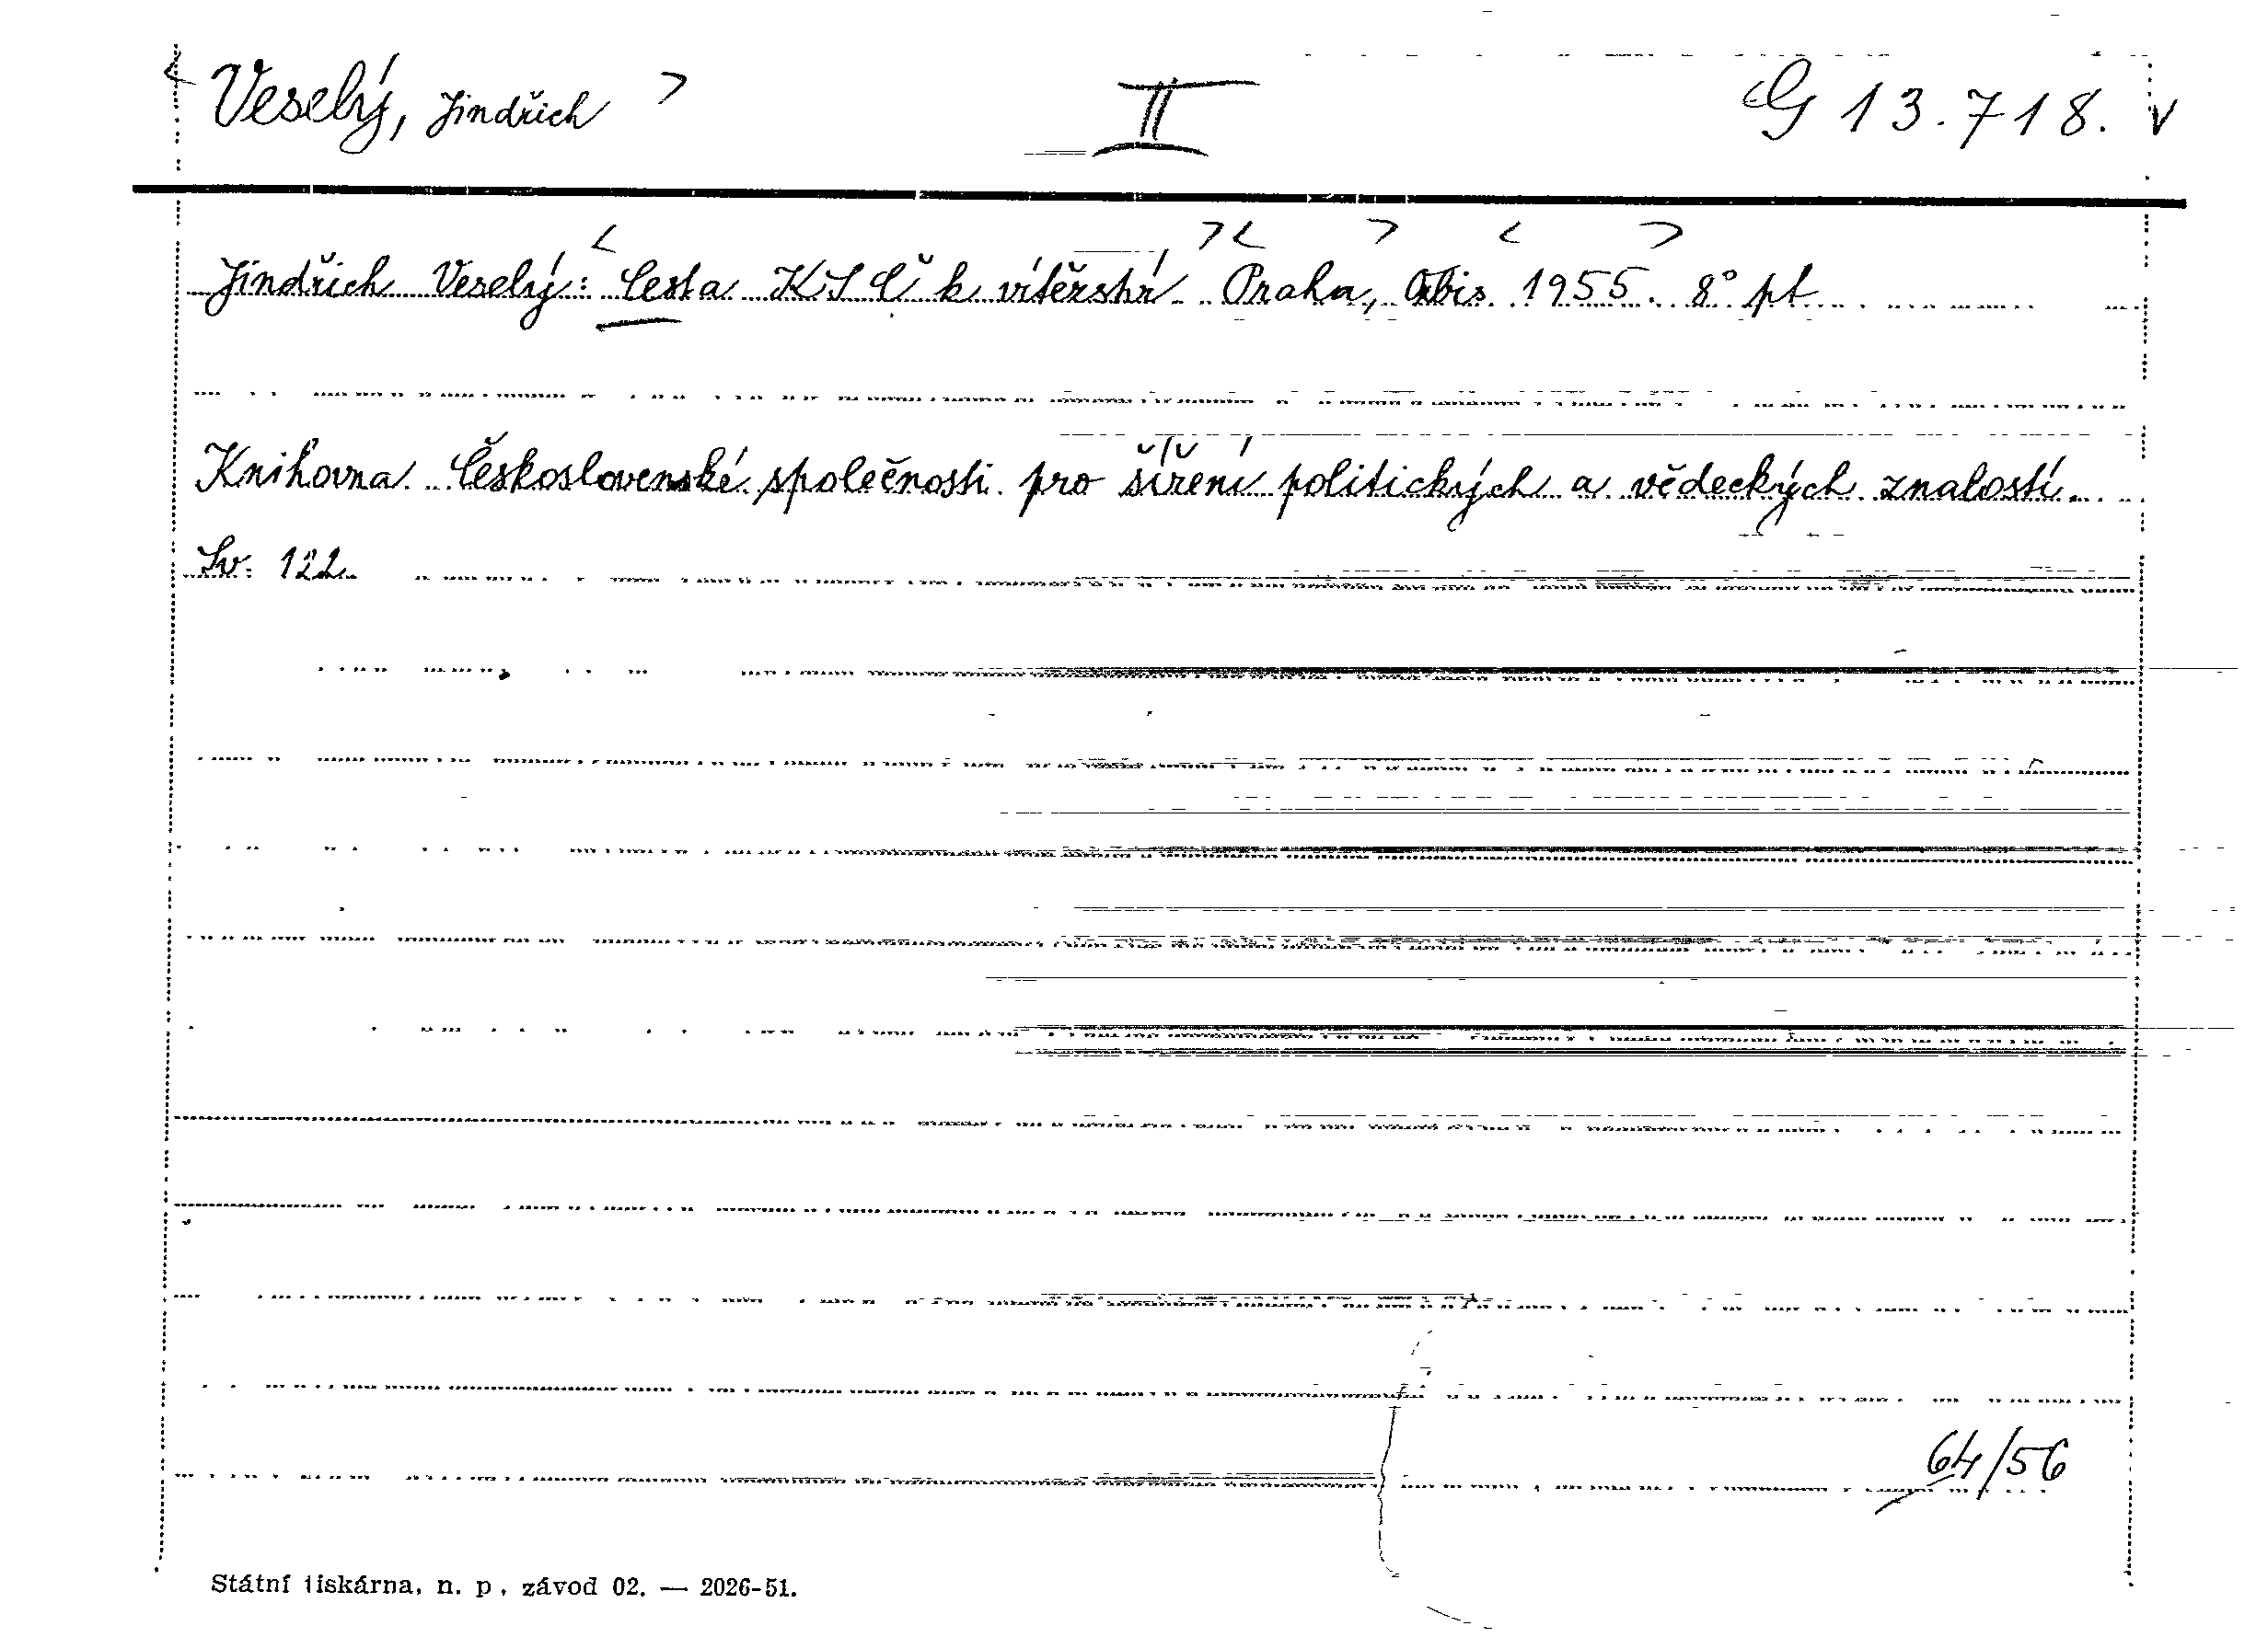 < Veselý, Jindřich > II G 13.718. v
Jindřich Veselý: < Cesta KSČ k vítězství > < Praha, Orbis > < 1955. > 8° pt
Knihovna Československé společnosti pro šíření politických a vědeckých znalostí.
Sv. 122.
64/56
Státní tiskárna, n. p., závod 02. — 2026-51.